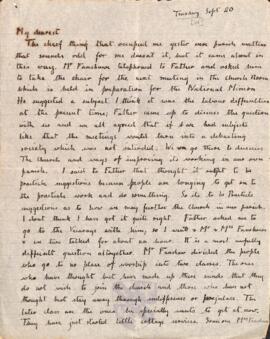 Tuesday Sept 20
My dearest
The chief thing that occupied me yester was parish matters
that sounds odd for me doesnt it, but it came about in
this way. Mr Fanshawe telephoned to Father and asked him
to take the chair for the next meeting in the Church Room
which is held in preparation for the National Mission
He suggested a subject I think it was the labour difficulties
at the present time; Father came up to discuss the question
with us and we all agreed that if we had subjects
like that the meetings would turn into a debating
society which was not intended. We go there to discuss
The Church and ways of improving its working in our own
parish. I said to Father that I thought it ought to be
practical suggestions human people are longing to get on to
the practical work and do something. So it is to
suggestions as to how we may further the church in our parish.
I dont think I have got it quite right. Father asked me to
go to the Vicarage with him, so I went & Mr & Mrs Fanshawe
& we two talked for about an hour. It is a most awfully
difficult question altogether. Mr Fanshawe divided the people
who go to no place of worship into two classes. The ones
who have thought but have made up their minds that they
do not wish to join the church and those who have not
thought but stay away through indifference or prejudice. The
latter class are the ones he specially wants to get at now.
They have just started little cottage services. Soon on Mr